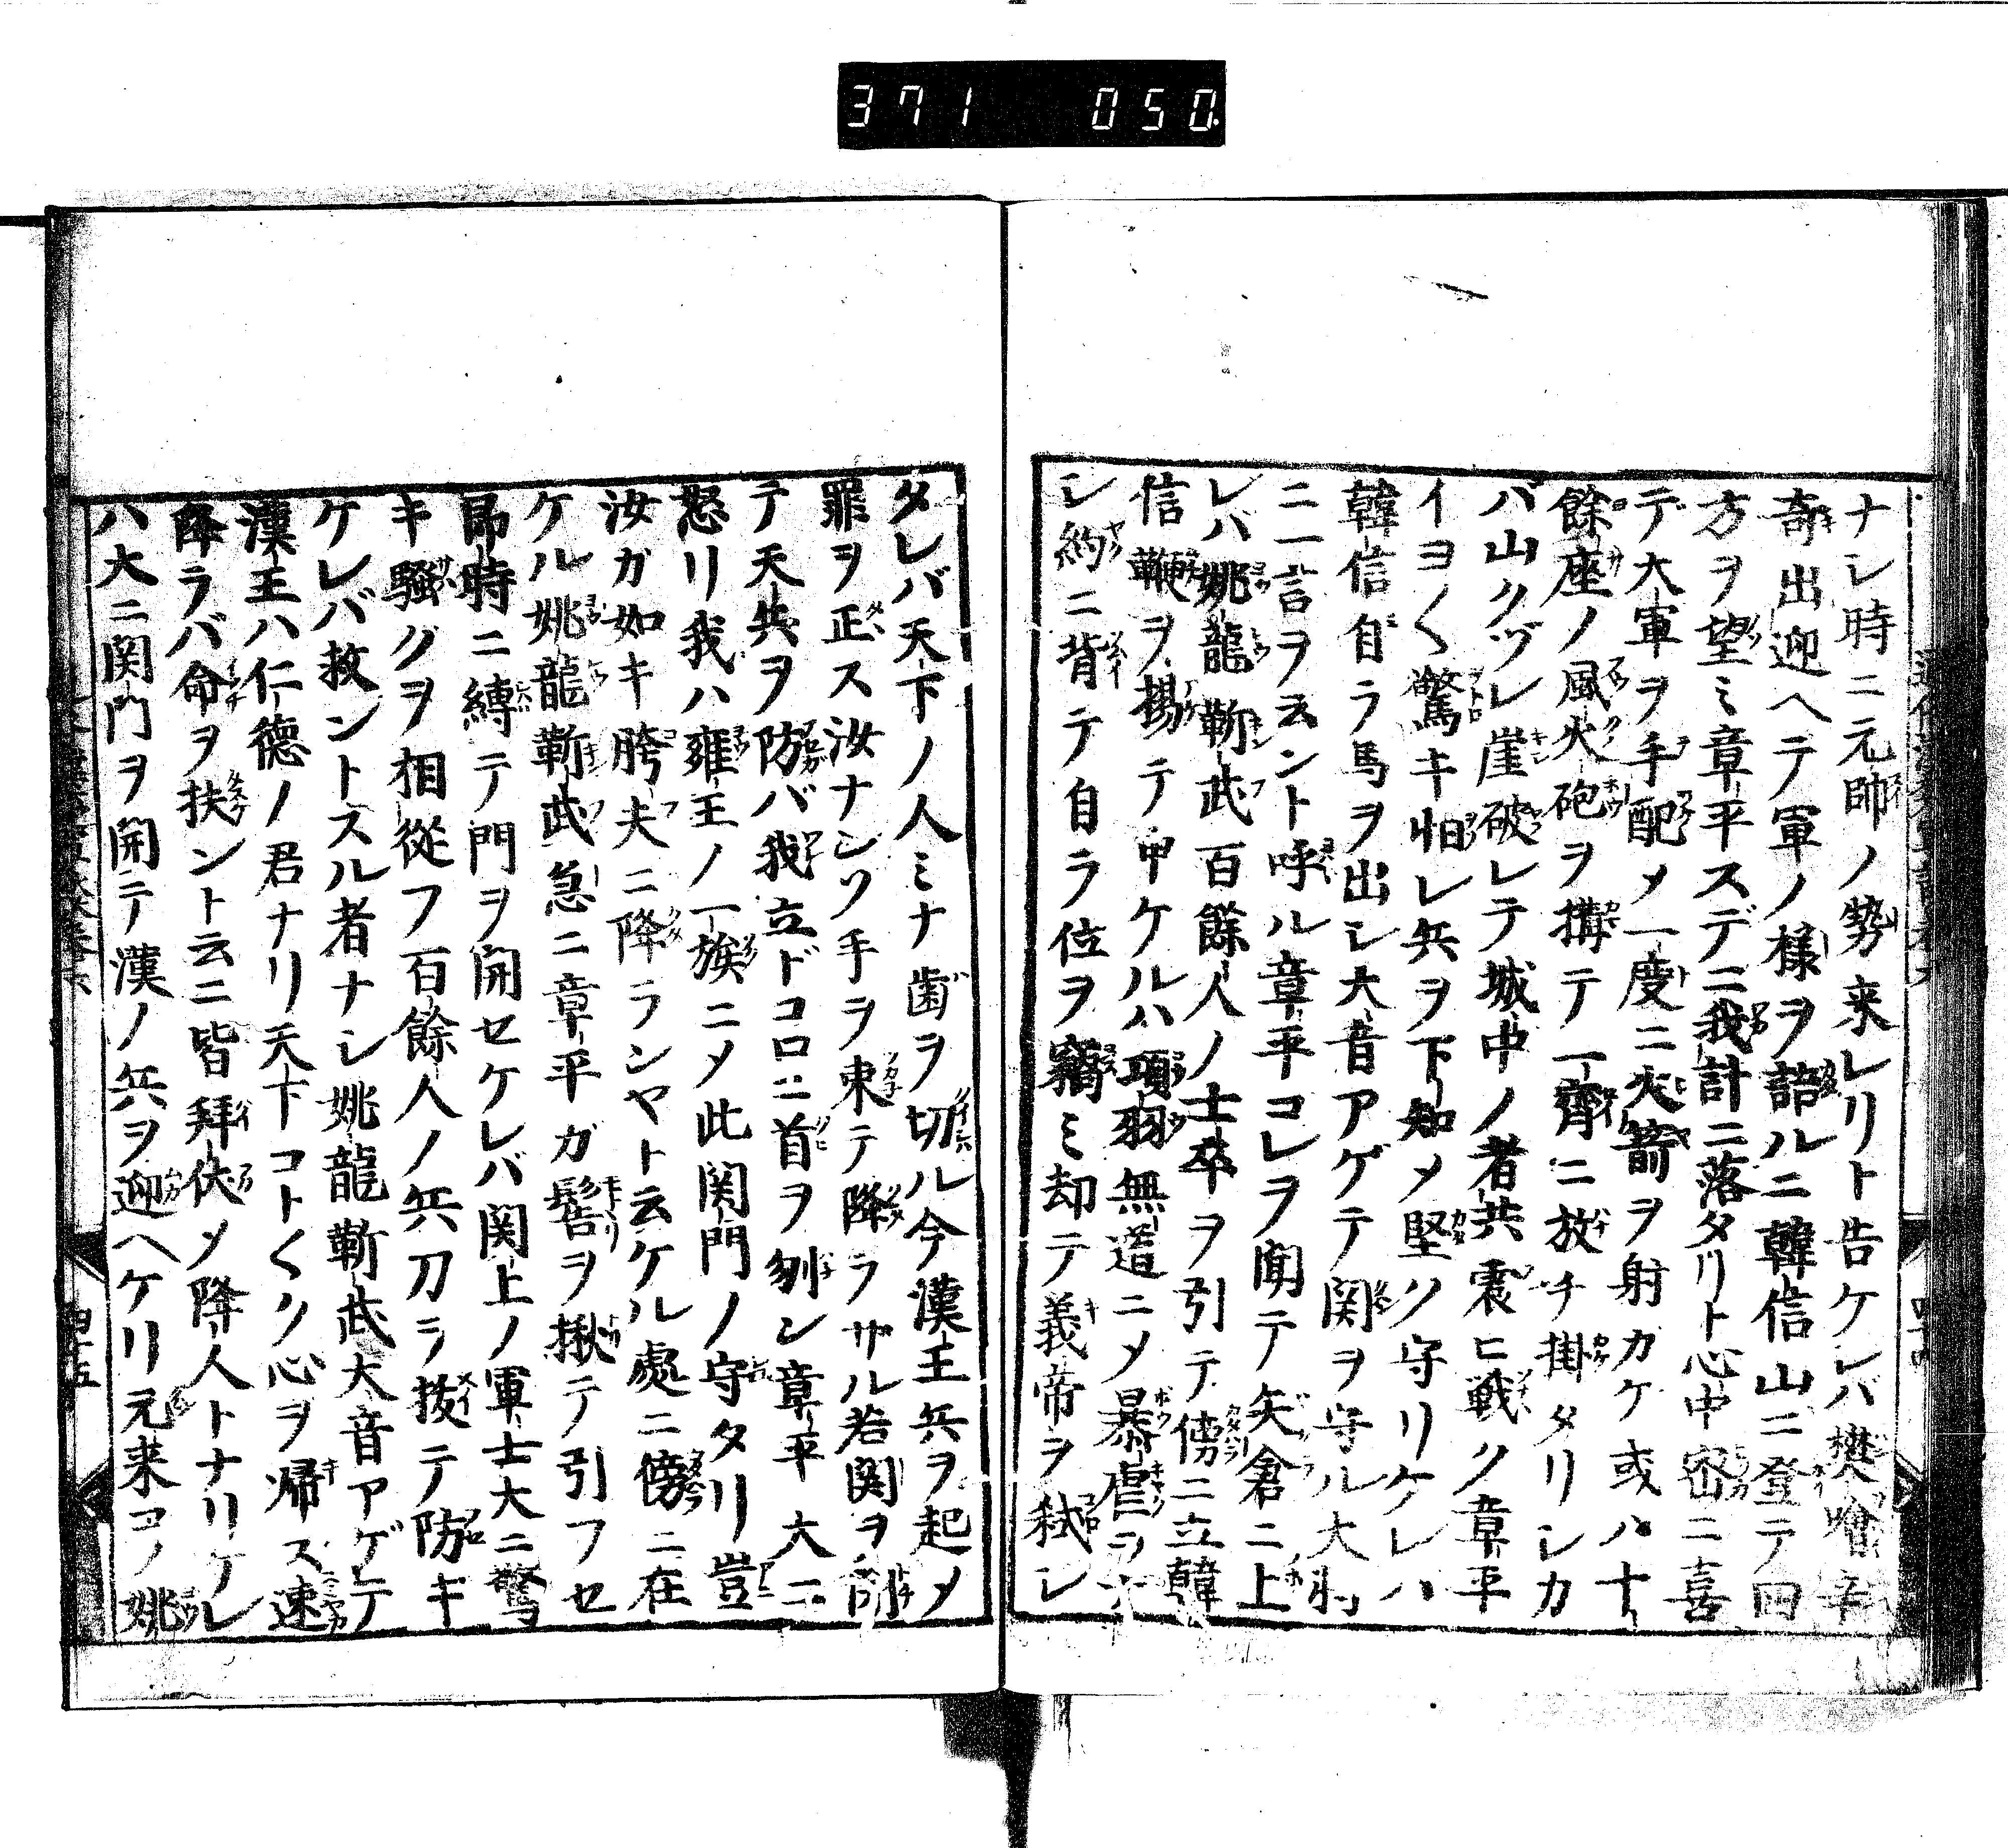 371 050
ナレ時ニ元帥ノ勢来レリト告ケレバ樊噲辛
奇出迎ヘテ軍ノ様ヲ語ルニ韓信山ニ登テ四
方ヲ望ミ章平スデニ我計ニ落タリト心中密ニ喜
デ大軍ヲ手配メ一度ニ火箭ヲ射カケ或ハ十
餘座ノ風火砲ヲ搆テ一齊ニ放チ掛タリシカ
バ山クヅレ崖破レテ城中ノ者共震ヒ戦ク章平
イヨ〱驚キ怕レ兵ヲ下知メ堅ク守リケレハ
韓信自ラ馬ヲ出シ大音アゲテ関ヲ守ル大将
ニ一言ヲ云ント呼ル章平コレヲ聞テ矢倉ニ上
レハ姚龍靳武百餘人ノ士卒ヲ引テ傍ニ立韓
信鞭ヲ揚テ申ケルハ項羽無道ニメ暴虐ヲ
シ約ニ背テ自ラ位ヲ竊ミ却テ義帝ヲ弑シ
タレバ天下ノ人ミナ歯ヲ切ル今漢王兵ヲ起メ
罪ヲ正ス汝ナンソ手ヲ束テ降ラザル若関ヲ閉
テ天兵ヲ防バ我立ドコロニ首ヲ刎ン章平大ニ
怒リ我ハ雍王ノ一族ニメ此関門ノ守タリ豈
汝ガ如キ胯夫ニ降ランヤト云ケル處ニ傍ニ在
ケル姚龍靳武急ニ章平ガ髻ヲ揪テ引フセ
即時ニ縛テ門ヲ開セケレバ関上ノ軍士大ニ驚
キ騒グヲ相從フ百餘人ノ兵刀ヲ抜テ防キ
ケレバ救ントスル者ナシ姚龍靳武大音アゲテ
漢王ハ仁德ノ君ナリ天下コト〱ク心ヲ帰ス速
降ラバ命ヲ扶ント云ニ皆拜伏メ降人トナリケレ
ハ大ニ関門ヲ開テ漢ノ兵ヲ迎ヘケリ元来コノ姚
四十五